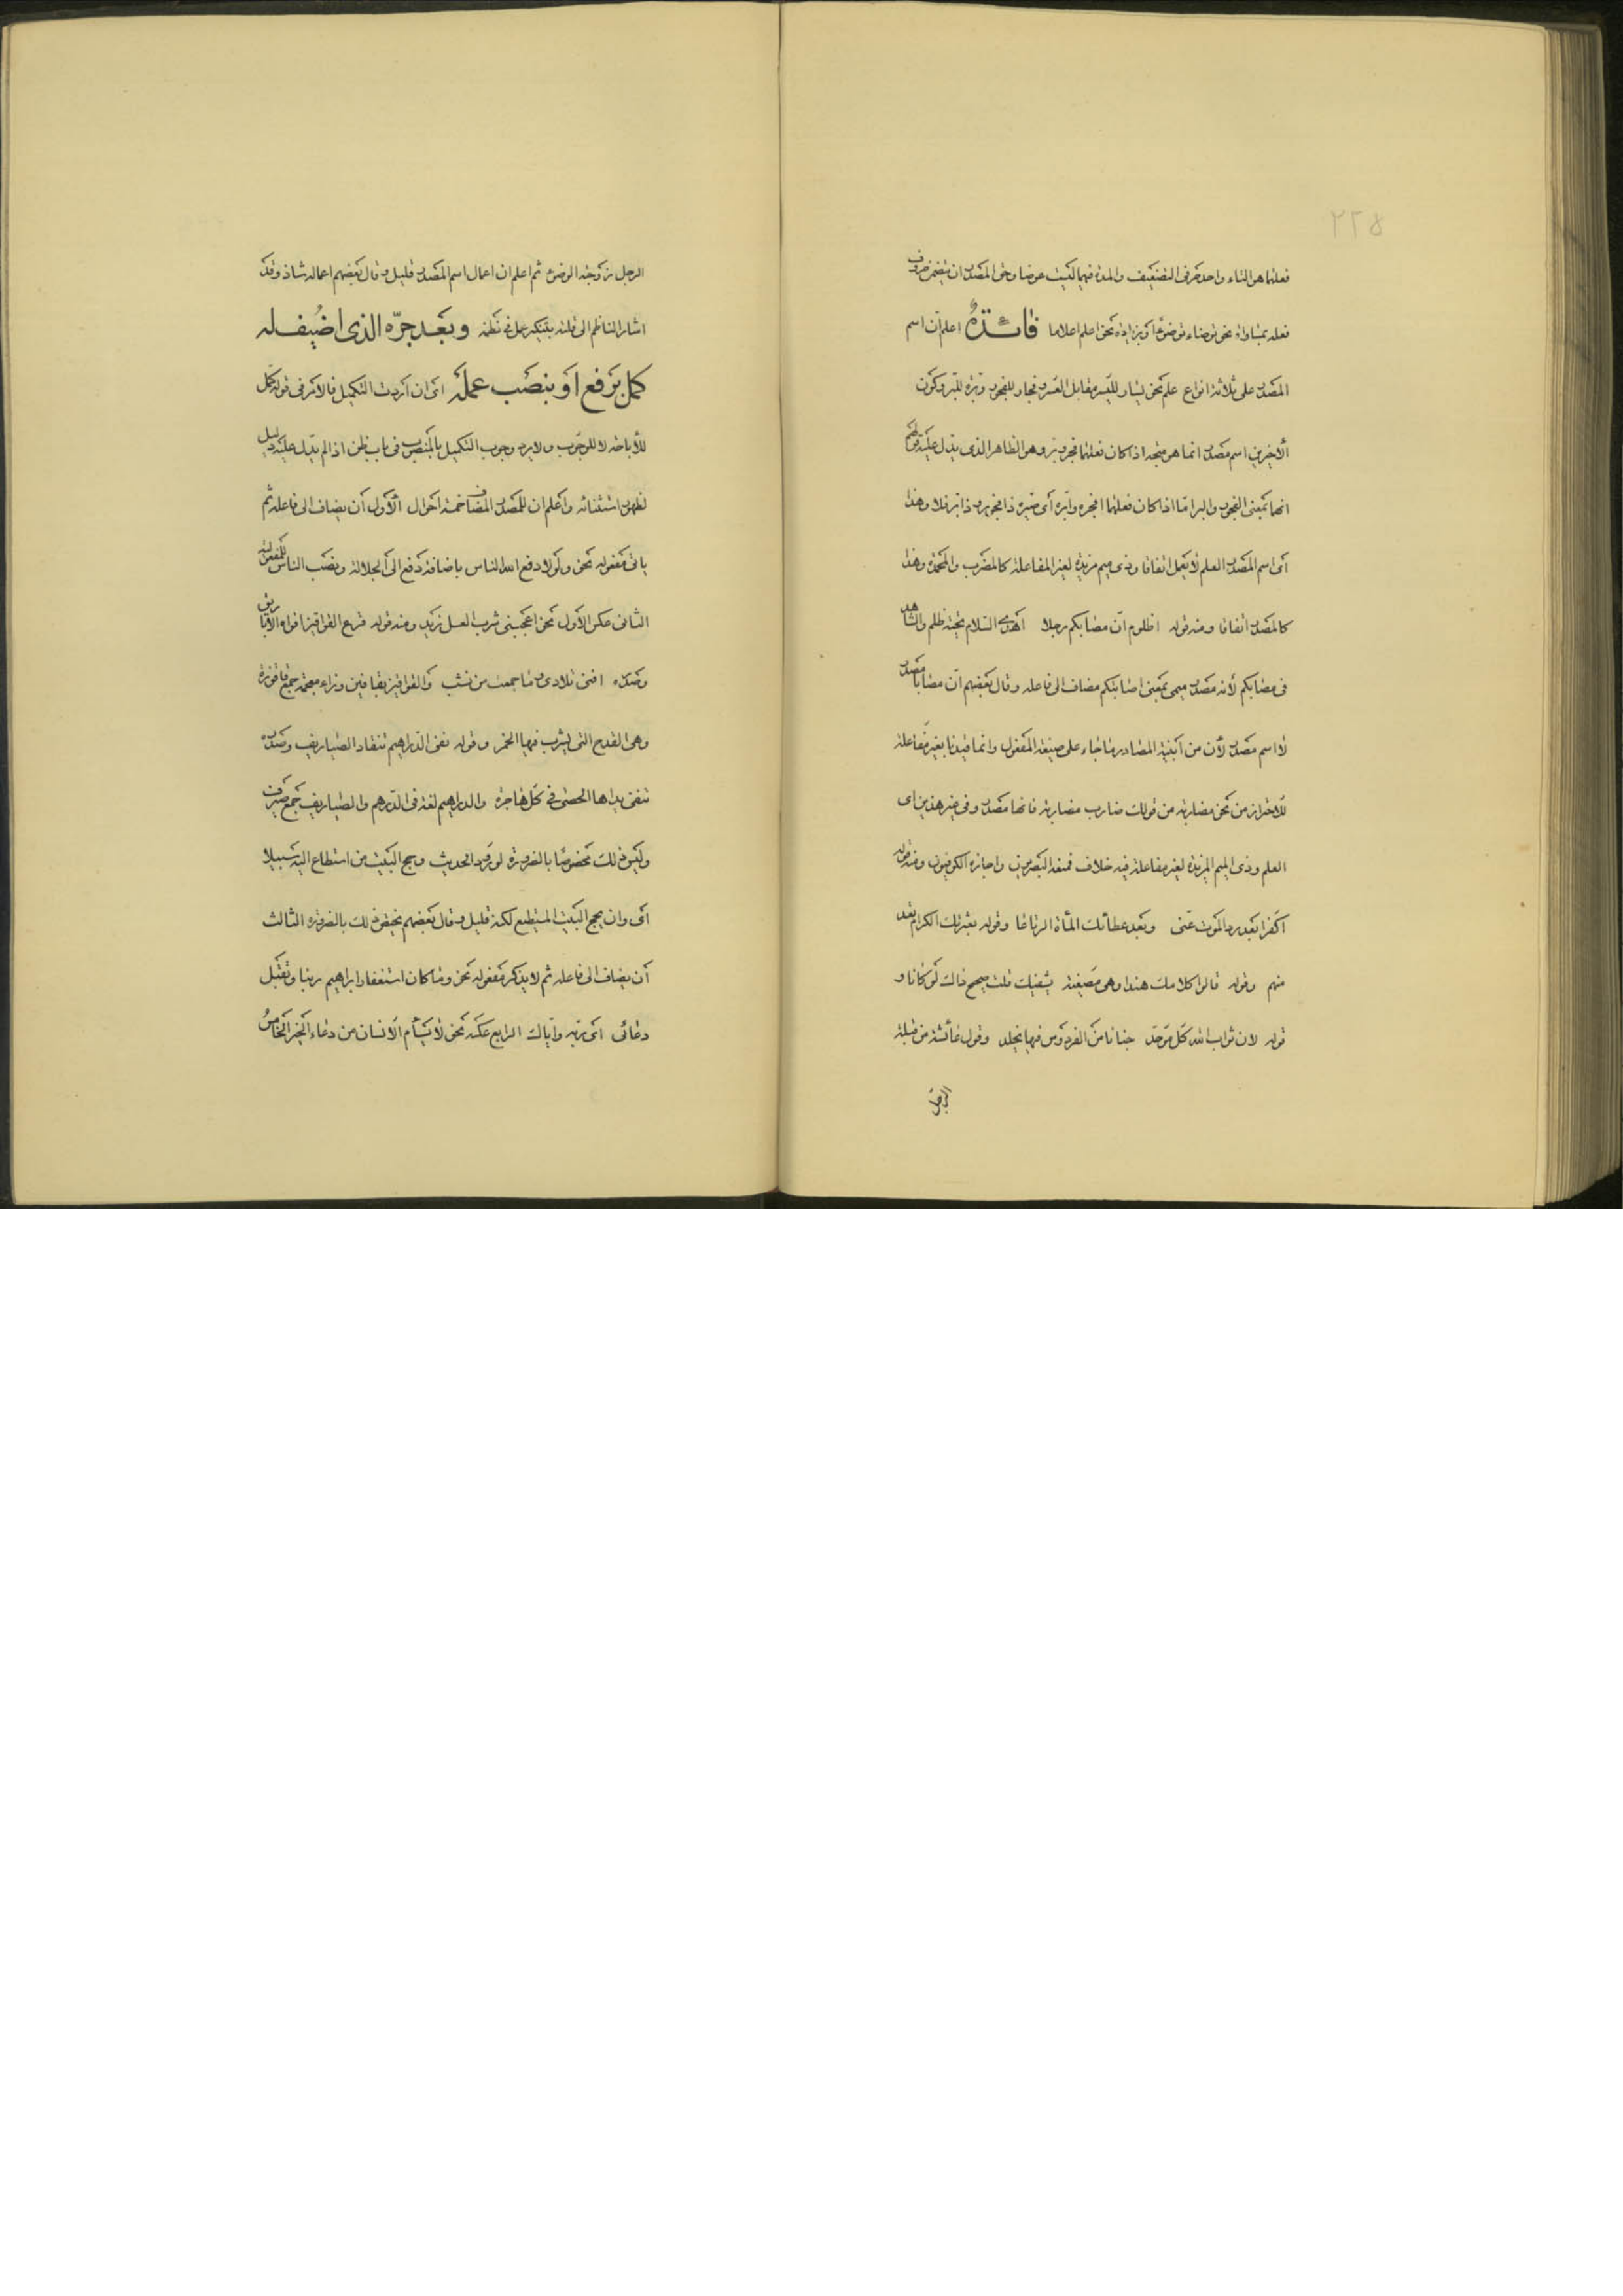 ٢٢٥
فعلهما هو التاء واحد حرفي التضعيف والمدة فيهما ليست عوضا وحق المصدر ان يتضمن حروف
فعله بمساواة نحو توضاء توضؤا او بزيادة نحو اعلم اعلاما فائدة اعلم ان اسم
المصدر على ثلاثة انواع علم نحو يسار لليسر مقابل العسر وفجار للفجور وبرة للبر وكون
الاخيرين اسم مصدر انما هو متجه اذا كان فعلهما فجر وبر وهو الظاهر الذي يدل عليه قولهم
انهما بمعنى الفجور والبر امّا اذا كان فعلهما افجره وابره اى صيره ذا فجور وذا بر فلا وهذا
اى اسم المصدر العلم لا يعمل اتفاقا وذى ميم مزيدة لغير المفاعلة كالمضرب والمحمدة وهذا
كالمصدر اتفاقا ومنه قوله اظلوم انّ مصابكم رجلا اهدى السلام تحية ظلم والشاهد
فى مصابكم لانه مصدر ميمى بمعنى اصابتكم مضاف الى فاعله وقال بعضهم انّ مصابا مصدر
لا اسم مصدر لان من ابنية المصادر ما جاء على صيغة المفعول وانما قيدنا بغير مفاعلة
للاحتراز من نحو مضاربة من قولك ضارب مضاربة فانها مصدر وفى غير هذين اى
العلم وذى الميم المزيدة لغير مفاعلة فيه خلاف فمنعه البصريون واجازه الكوفيون ومنه قوله
اكفرا بعد رد الموت عنى وبعد عطائك المأة الرتاعا وقوله بعشرتك الكرام تعد
منهم وقوله قالوا كلامك هندا وهى مصغية يشفيك قلت صحيح ذاك لو كانا و
قوله لان ثواب الله كل موحد جنانا من الفردوس فيها يخلد وقول عائشة من قبلة
الرجل
الرجل زوجته الوضوء ثم اعلم ان اعمال اسم المصدر قليل وقال بعضهم اعماله شاذ وقد
اشار الناظم الى قلته بتنكير عمل فى نظمه وبعد جرّه الذى اضيف له
كمل برفع او بنصب عمله اى ان اردت التكميل فالامر فى قوله كمل
للأباحة لا للوجوب ولا يرد وجوب التكميل بالمنصوب فى باب ظن اذا لم يدل عليه دليل
لظهور استثنائه واعلم ان للمصدر المضاف خمسة احوال الأول أن يضاف الى فاعله ثم
ياتى مفعوله نحو ولولا دفع الله الناس باضافة دفع الى الجلالة ونصب الناس للمفعولية
الثانى عكس الأول نحو اعجبنى شرب العسل زيد ومنه قوله قرع القواقيز افواه الأباريق
وصدره افنى تلادى وما جمعت من نشب والقواقيز بقافين وزاء معجمة جمع قاقوزة
وهى القدح التى يشرب فيها الخمر وقوله نفى الدراهيم تنقاد الصياريف وصدره
تنفى يداها الحصى فى كل هاجرة والدراهيم لغة فى الدرهم والصياريف جمع صيرف
وليس ذلك مخصوصا بالضرورة لورود الحديث وحج البيت من استطاع اليه سبيلا
اى وان يحج البيت المستطيع لكنه قليل وقال بعضهم يختص ذلك بالضرورة الثالث
أن يضاف الى فاعله ثم لا يذكر مفعوله نحو وما كان استغفار ابراهيم ربنا وتقبل
دعائى اى ربه واياك الرابع عكسه نحو لا يسأم الانسان من دعاء الخير الخامس